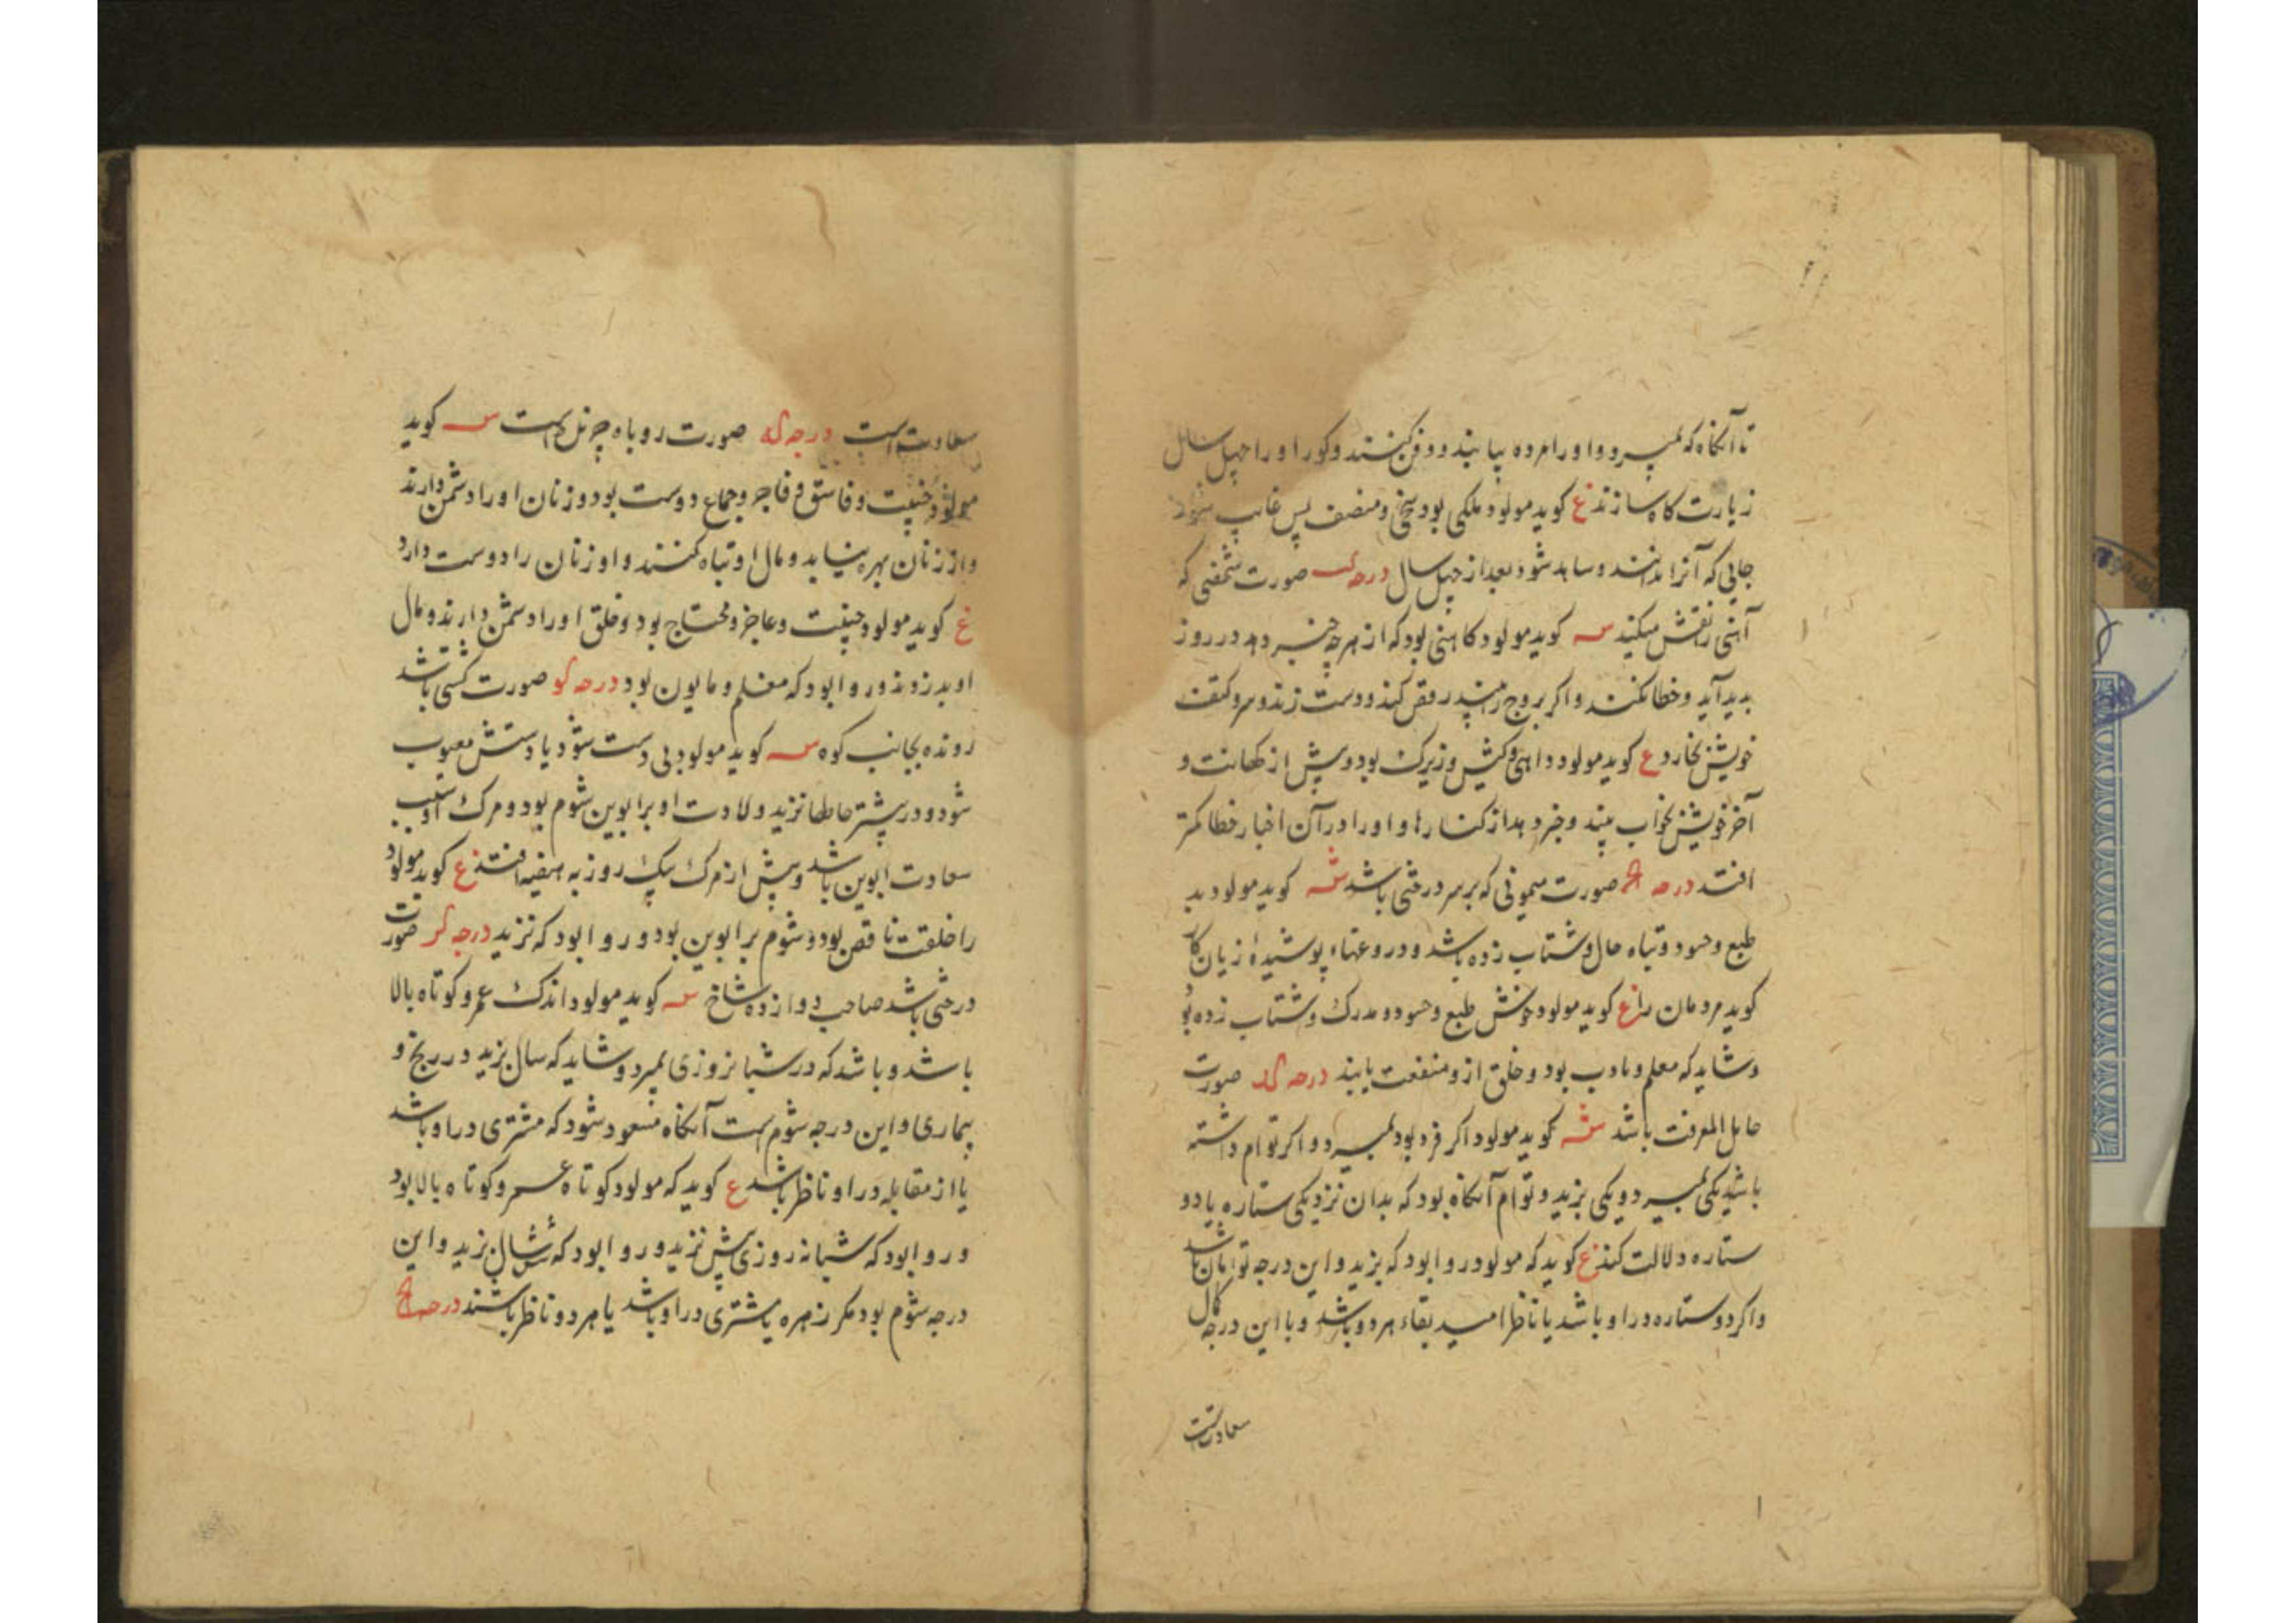 تا آنکاه که بمیرد و او را مرده بیابند و دفن کنند و کور او را چهل سال
زیارت کاه سازند ع کوید مولود ملکی بود سخی و منصف پس غایب شود
جایی که آنرا ندانند و شود بعد از چهل سال درجه صورت شخصی که
آهنی را نقش میکند س کوید مولود کاهنی بود که از هر چه خبر دهد در روز
بدید آید و خطا نکند و اکر بروج رقص کند و دست زند و سر و کتف
خویش بخارد ع کوید مولود داهی و کش و زیرک بود و پیش از کهانت و
آخر خویش بخواب بیند و خبر دهد از کنارها و او را در آن اخبار خطا کمتر
افتد درجه صورت میمونی که بر سر درختی باشد س کوید مولود بد
طبع و حسود و تباه حال و شتاب زده باشد و دروغها پوشیده زیان کار
کوید مردمان را ع کوید مولود خوش طبع و حسود و مدرک و شتاب زده بود
و شاید که معلم و مادب بود و خلق ازو منفعت یابند درجه کد صورت
حامل المعرفت باشد س کوید مولود اکر فرد بود بمیرد و اکر توام داشته
باشد یکی بمیرد و یکی بزید و توام آنکاه بود که بدان نزدیکی ستاره یا دو
ستاره دلالت کند ع کوید که مولود روا بود که بزید و این درجه توامان باشد
و اکر دو ستاره در او باشد یا ناظر امید بقاء هر دو باشد و با این درجه کمال
سعادتست
سعادتست درجه که صورت روباه است س کوید
مولود خبیث و فاسق و فاجر و جماع دوست بود و زنان او را دشمن دارند
و از زنان بهره نیابد و مال او تباه کنند و او زنان را دوست دارد
ع کوید مولود خبیث و عاجز و محتاج بود و خلق او را دشمن دارند و مال
او بدزدند و روا بود که معلم و مابون بود درجه کو صورت کسی باشد
رونده بجانب کوه س کوید مولود بی دست شود یا دستش معیوب
شود و در بیشتر نزید و ولادت او بر ابوین شوم بود و مرک او سبب
سعادت ابوین باشد و پیش از مرک بیک روز به افتد ع کوید مولود
را خلقت ناقص بود و شوم بر ابوین بود و روا بود که نزید درجه کز صورت
درختی باشد صاحب دوازده شاخ س کوید مولود اندک عمر و کوتاه بالا
باشد و باشد که در شبانروزی بمیرد و شاید که سال بزید در رنج و
بیماری و این درجه شوم است آنکاه مسعود شود که مشتری در او باشد
یا از مقابله در او ناظر باشد ع کوید که مولود کوتاه عمر و کوتاه بالا بود
و روا بود که شبانه روزی بیش نزید و روا بود که شش سال بزید و این
درجه شوم بود مکر زهره یا مشتری در او باشد یا هر دو ناظر باشند درجه کح